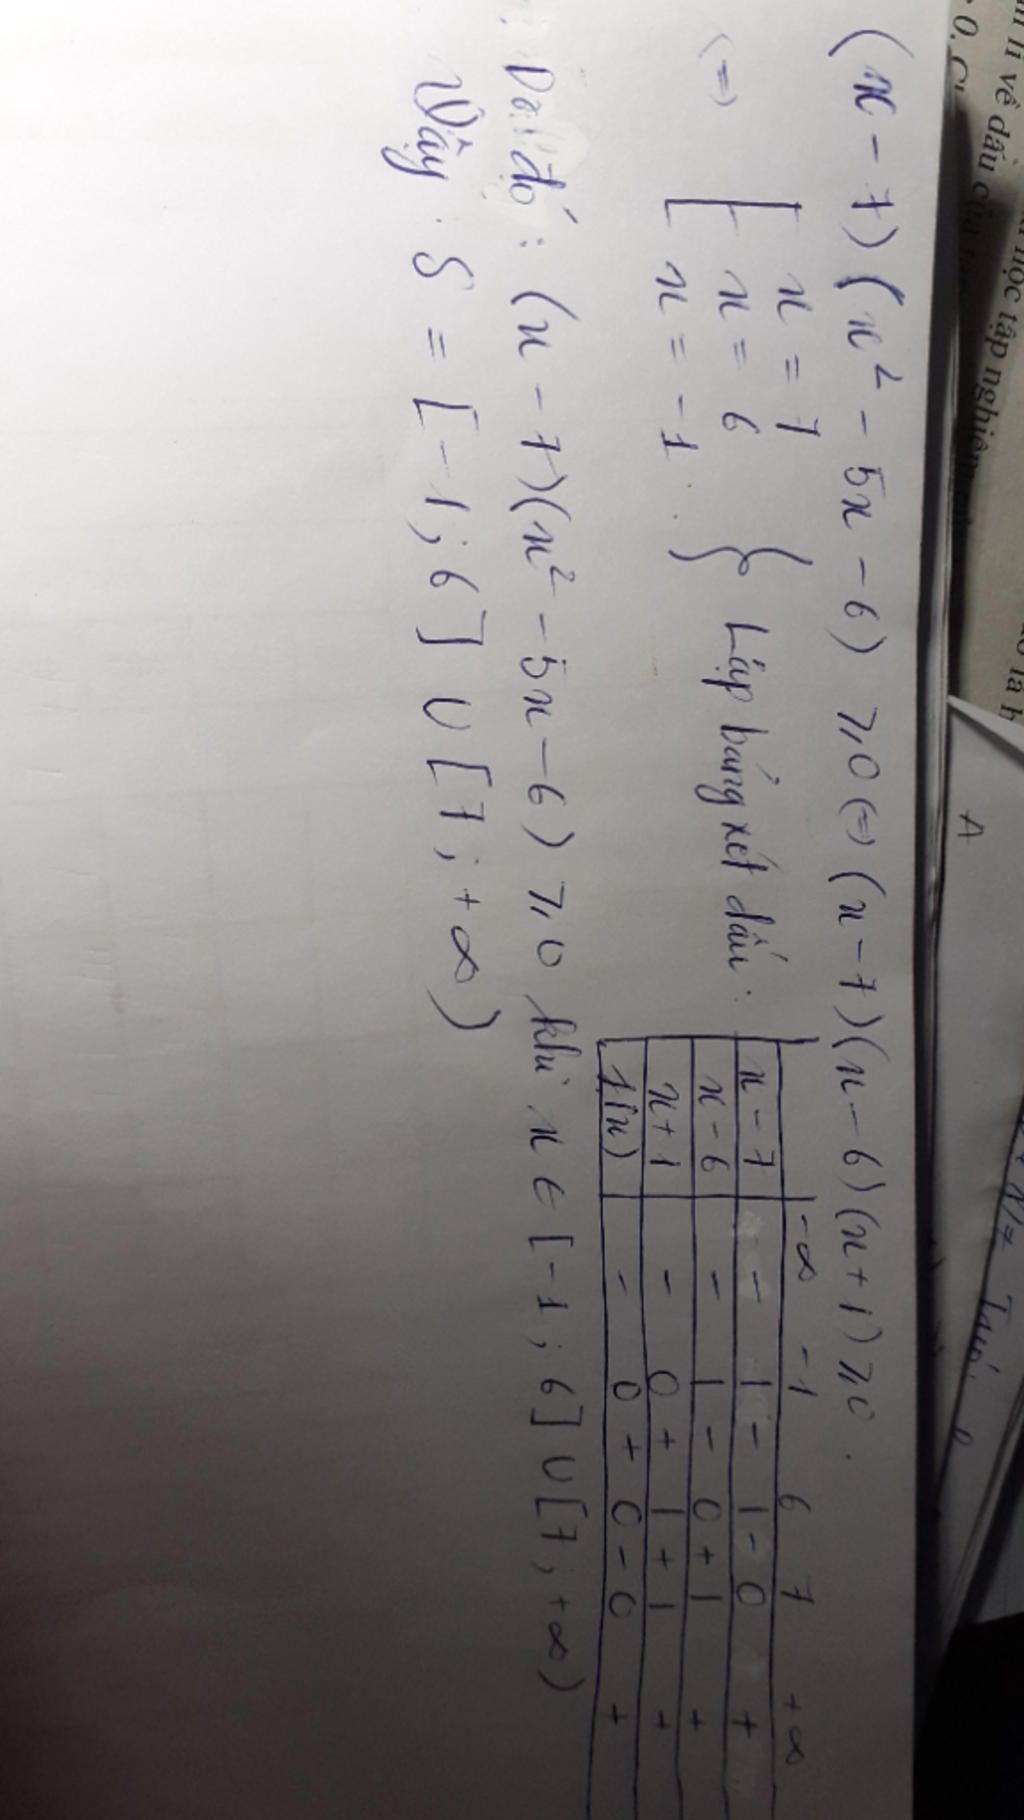 (x - 7)(x² - 5x - 6) ≥ 0 (=) (x - 7)(x - 6)(x + 1) ≥ 0.
(=) [ x = 7
x = 6
x = -1 . } Lập bảng xét dấu :
-∞ -1 6 7 +∞
x - 7 - | - | - 0 +
x - 6 - | - 0 + | +
x + 1 - 0 + | + | +
f(x) - 0 + 0 - 0 +
Do đó : (x - 7)(x² - 5x - 6) ≥ 0 khi x ∈ [-1 ; 6] ∪ [7 ; +∞)
Vậy S = [-1 ; 6] ∪ [7 ; +∞)
về dấu của
học tập
A